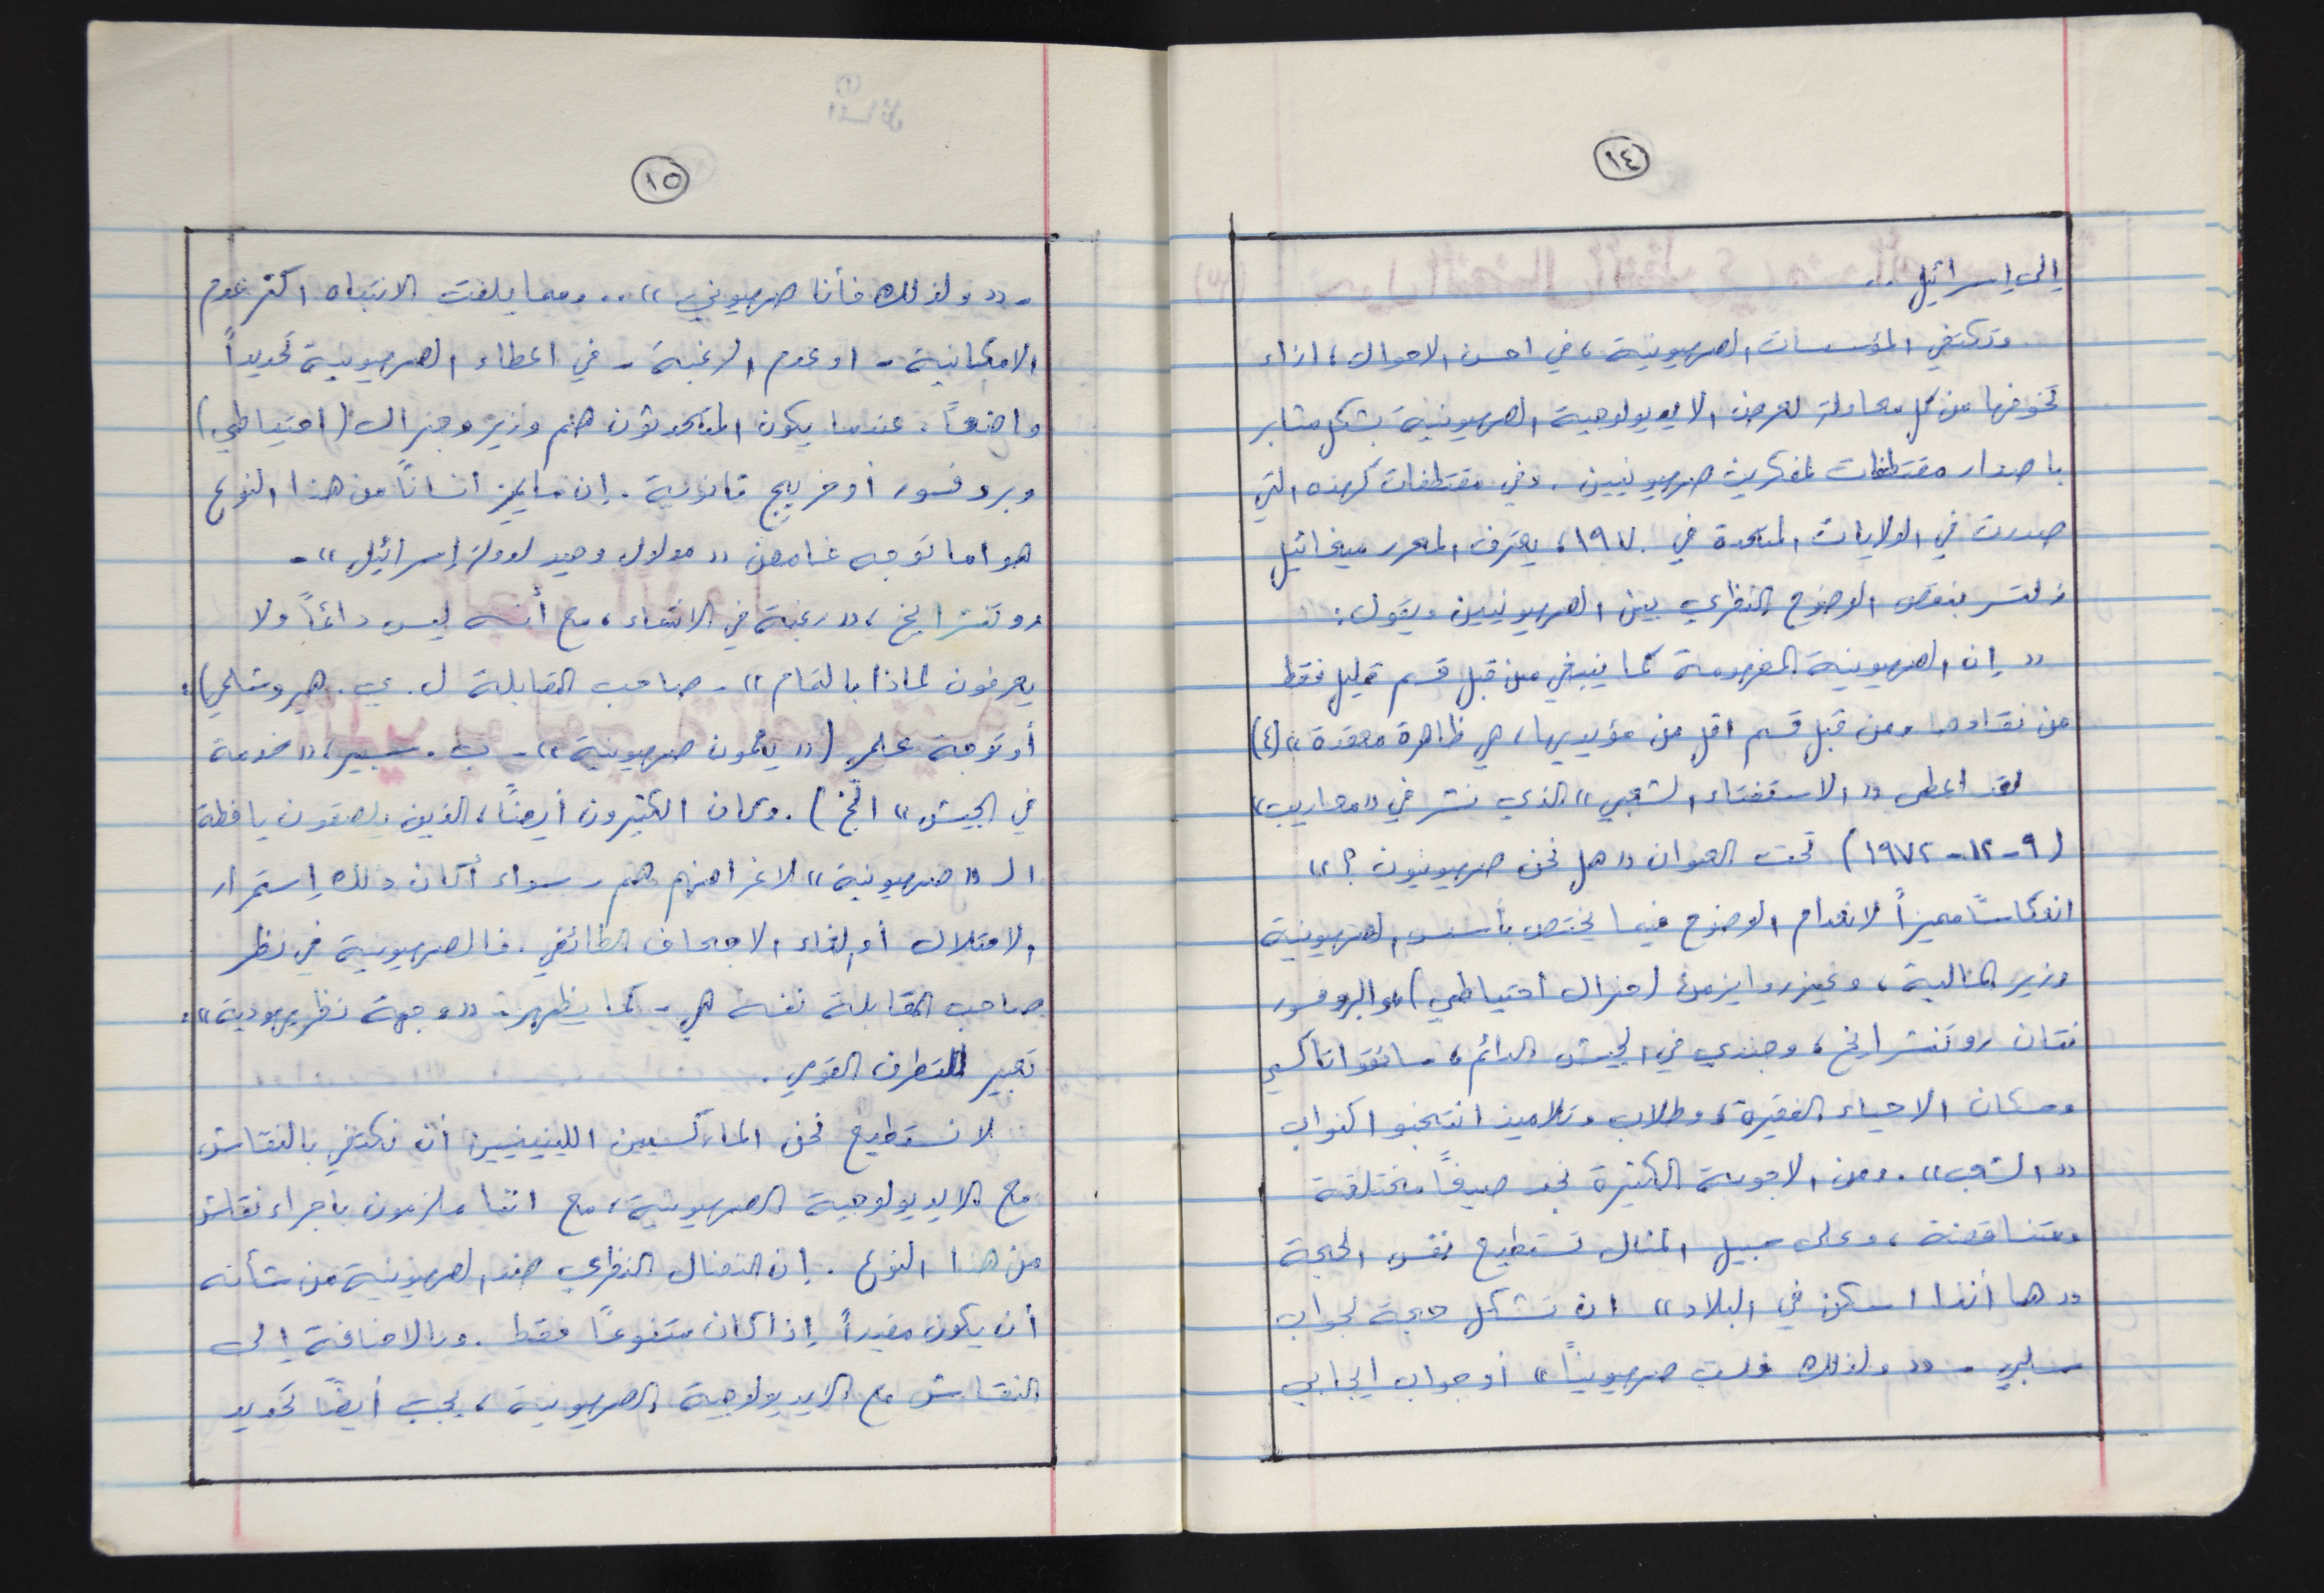 ١٤
إلى إسرائيل ..
وتكتفي المؤسسات الصهيونية، في احسن الاحوال، ازاء
تخوفها من كل محاولة لعرض الايديولوجية الصهيونية بشكل مثابر
باصدار مقتطفات لمفكرين صهيونيين. وفي مقتطفات كهذه التي
صدرت في الولايات المتحدة في ١٩٧٠، يعترف المحرر ميخائيل
زلتسر بنقص الوضوح النظري بين الصهيونيين ويقول:
" إن الصهيونية المفهومة كما ينبغي من قبل قسم قليل فقط
من نقادها ومن قبل قسم اقل من مؤيديها، هي ظاهرة معقدة " (٤)
لقد اعطى " الاستفتاء الشعبي " الذي نشر في " معاريب "
(٩-١٢-١٩٧٢) تحت العنوان " هل نحن صهيونيون ؟ "
انعكاساً مميزاً لانعدام الوضوح فيما يختص بأسس الصهيونية
وزير المالية، وعيزر وايزمن (جنرال احتياطي) والبروفسور
نتان روتنشرايخ، وجندي في الجيش الدائم، سائقو اتاكسي
وسكان الاحياء الفقيرة، وطلاب وتلاميذ انتخبو اكنواب
" الشعب ". ومن الاجوبة الكثيرة نجد صيغاً مختلفة
ومتناقضة، وعلى سبيل المثال تستطيع نفس الحجة
" ها أنذا اسكن في البلاد " ان تشكل حجة لجواب
سلبي - " ولذلك فلست صهيونياً " أو جواب ايجابي
١٥
- " ولذلك فأنا صهيوني " .. ومما يلفت الانتباه اكثر عدم
الامكانية - او عدم الرغبة - في اعطاء الصهيونية تحديداً
واضحاً. عندما يكون المتحدثون هم وزير وجنرال (احتياطي)
وبروفسور أو خريج ثانوية. إن ما يميز انساناً من هذا النوع
هو اما توجه غامض " مدلول وحيد لدولة إسرائيل " -
روتنشرايخ، " رغبة في الانتماء، مع أنه ليس دائماً ولا
يعرفون لماذا بالتمام " - صاحب المقابلة ل. ي. هيروشلمي):
أو توجه علمي (" يتمون صهيونية " - ب. سبير، " خدمة
في الجيش " الخ ). وكان الكثيرون أيضاً، الذين يلصقون يافطة
الـ " صهيونية " لاغراضهم هم - سواء أكان ذلك إستمرار
الاحتلال أو الغاء الاجحاف الطائفي. فالصهيونية في نظر
صاحب المقابلة نفسه هي - كما يظهر - " وجهة نظر يهودية ":
تعبير للتطرف القومي.
لا نستطيع نحن الماركسيين اللينينيين أن نكتفي بالنقاش
مع الايديولوجية الصهيونية، مع اننا ملزمون باجراء نقاش
من هذا النوع. إن النضال النظري ضد الصهيونية من شأنه
أن يكون مفيداً إذا كان متنوعاً فقط. وبالاضافة إلى
النقاش مع الايديولوجية الصهيونية، يجب أيضاً تحديد